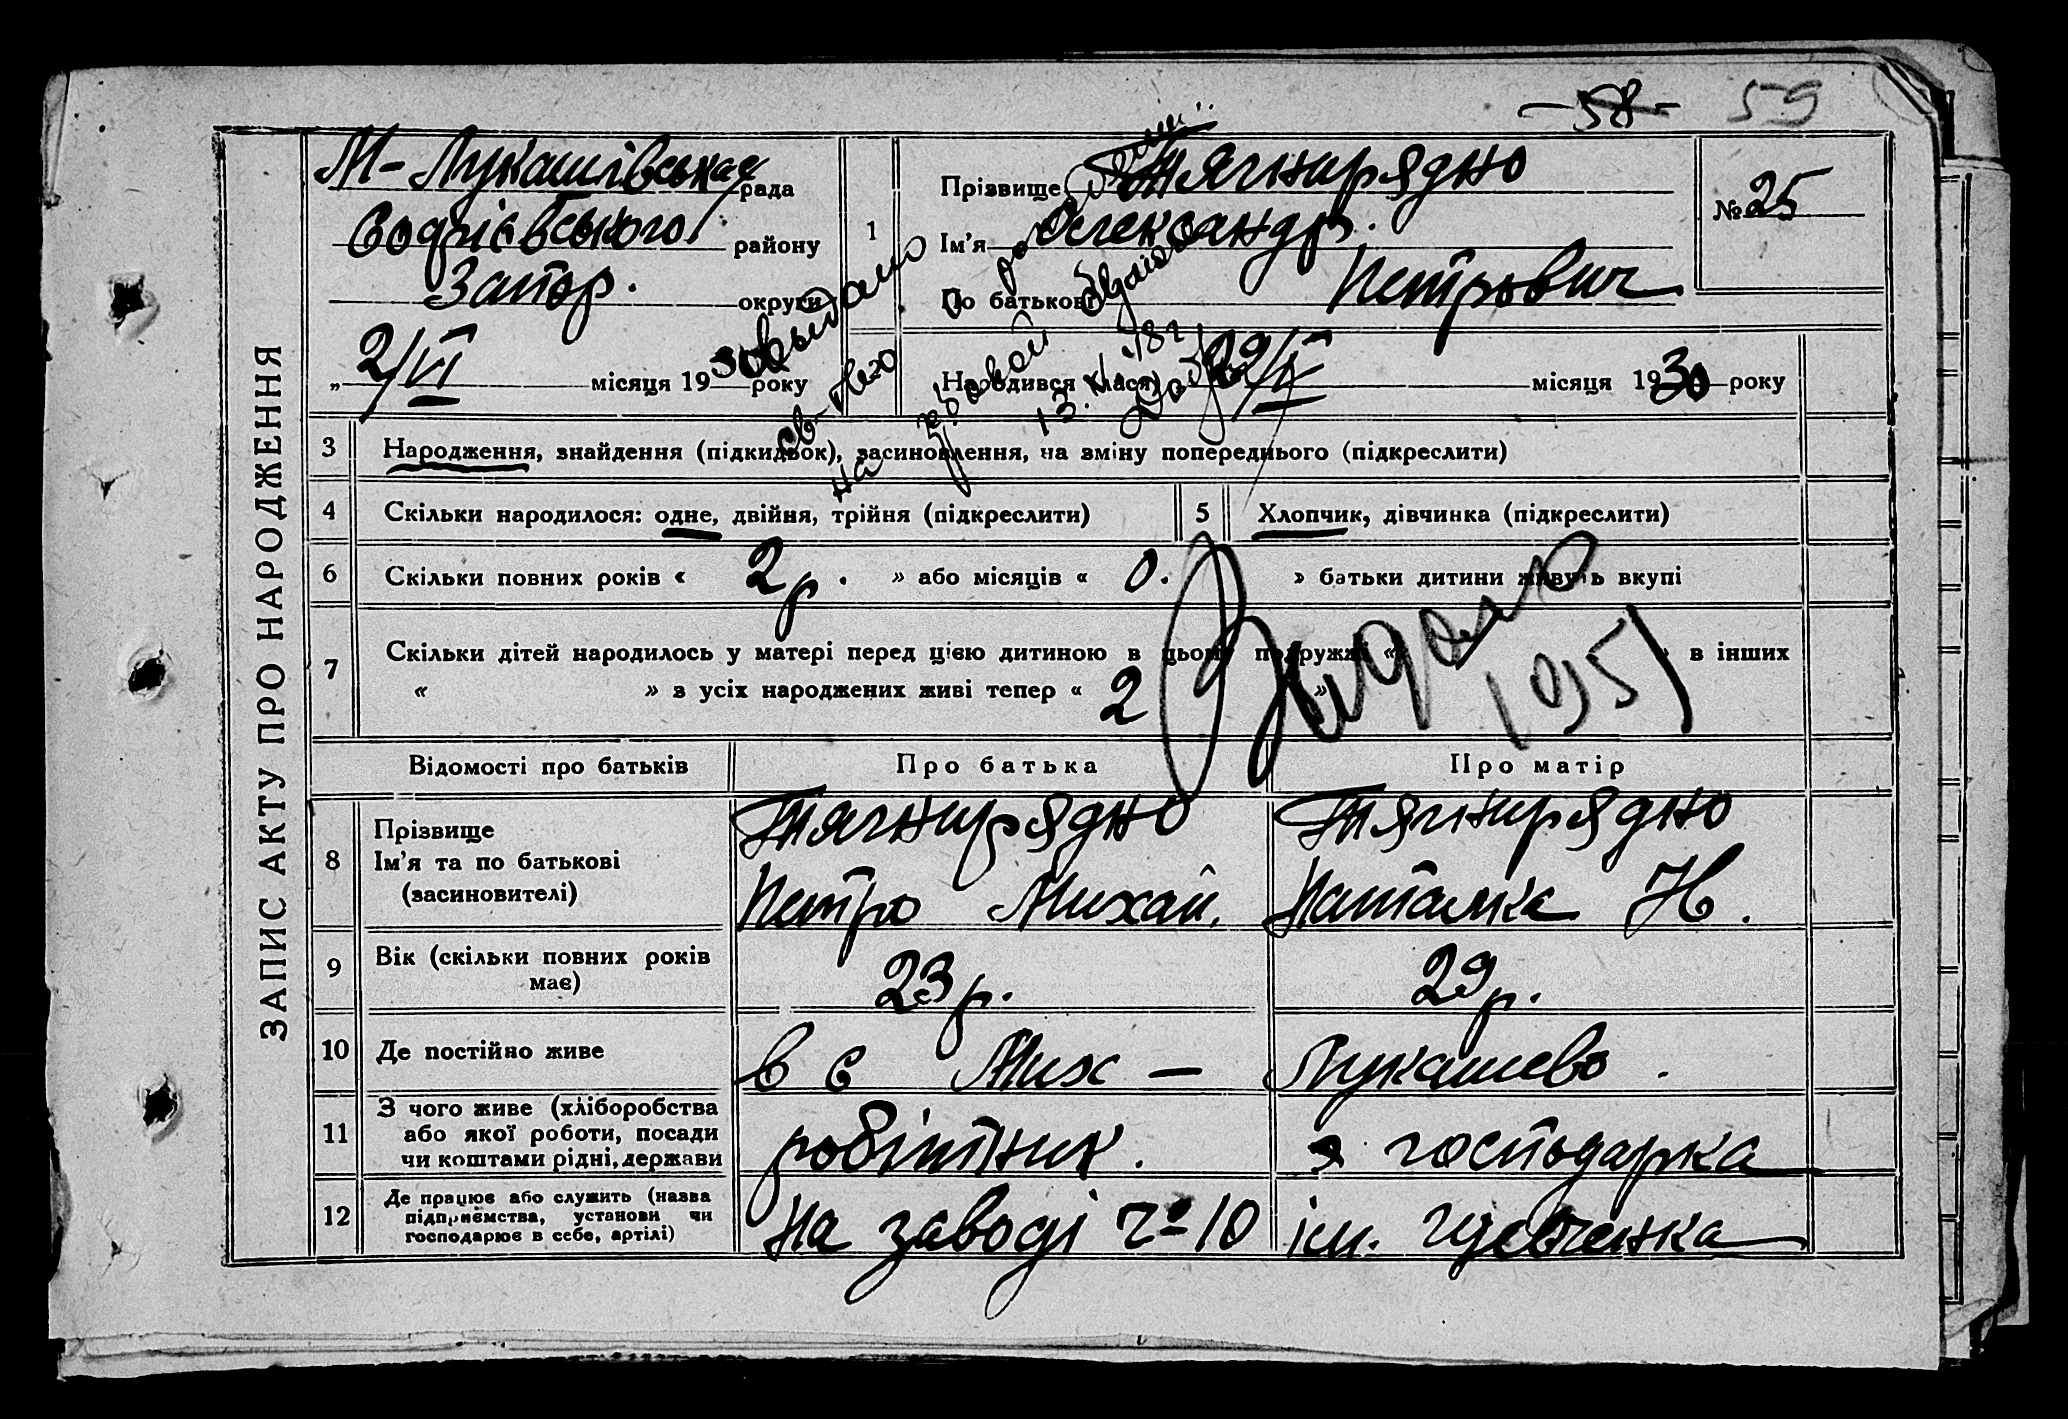 -58- 59
М-Лукашівська рада
Софіївського району
Запор. округи
"2/VI місяця 1930 року
1
Прізвище Тягнирядно
Ім'я Олександр.
По батькові Петрович
№ 25
Народився 29/V місяця 1930 року
ЗАПИС АКТУ ПРО НАРОДЖЕННЯ
3 Народження, знайдення (підкидьок), засиновлення, на зміну попереднього (підкреслити)
4 Скільки народилося: одне, двійня, трійня (підкреслити)
5 Хлопчик, дівчинка (підкреслити)
6 Скільки повних років « 2 р. » або місяців « 0. » батьки дитини живуть вкупі
7 Скільки дітей народилось у матері перед цією дитиною в цьому подружжі « » в інших
« » з усіх народжених живі тепер « 2 »
Видано
1951
Відомості про батьків Про батька Про матір
8 Прізвище
Ім'я та по батькові
(засиновителі)
Тягнирядно
Петро Михай.
Тягнирядно
Наталка Н.
9 Вік (скільки повних років
має)
23 р. 29 р.
10 Де постійно живе
в с Мих - Лукашево.
11 З чого живе (хліборобства
або якої роботи, посади
чи коштами рідні, держави
робітник. господарка
12 Де працює або служить (назва
підприємства, установи чи
господарює в себе, артілі)
На заводі ч° 10 ім. Шевченка